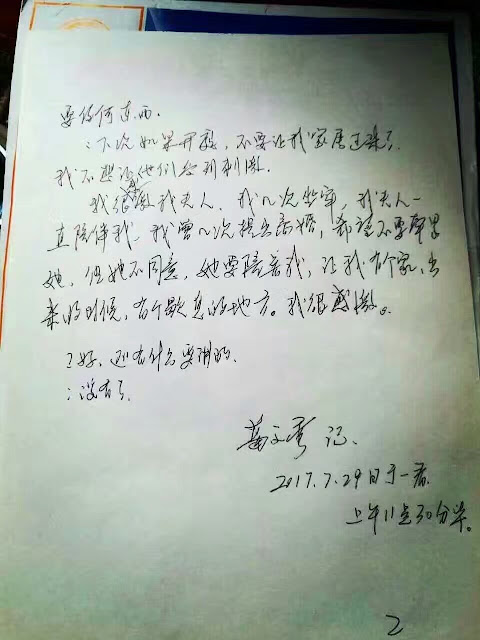 要任何东西。
：下次如果开庭，不要让我家属过来了
我不想让他们受到刺激
我很感激我夫人，我几次坐牢，我夫人一
直陪伴我，我曾几次提出离婚，希望不要牵累
她，但她不同意，她要陪着我，让我有个家，出
来的时候，有个歇息的地方。我很感激。
？好，还有什么要讲的，
：没有了
葛文秀 记
2017.7.29日于一看
上午11点30分毕。
2